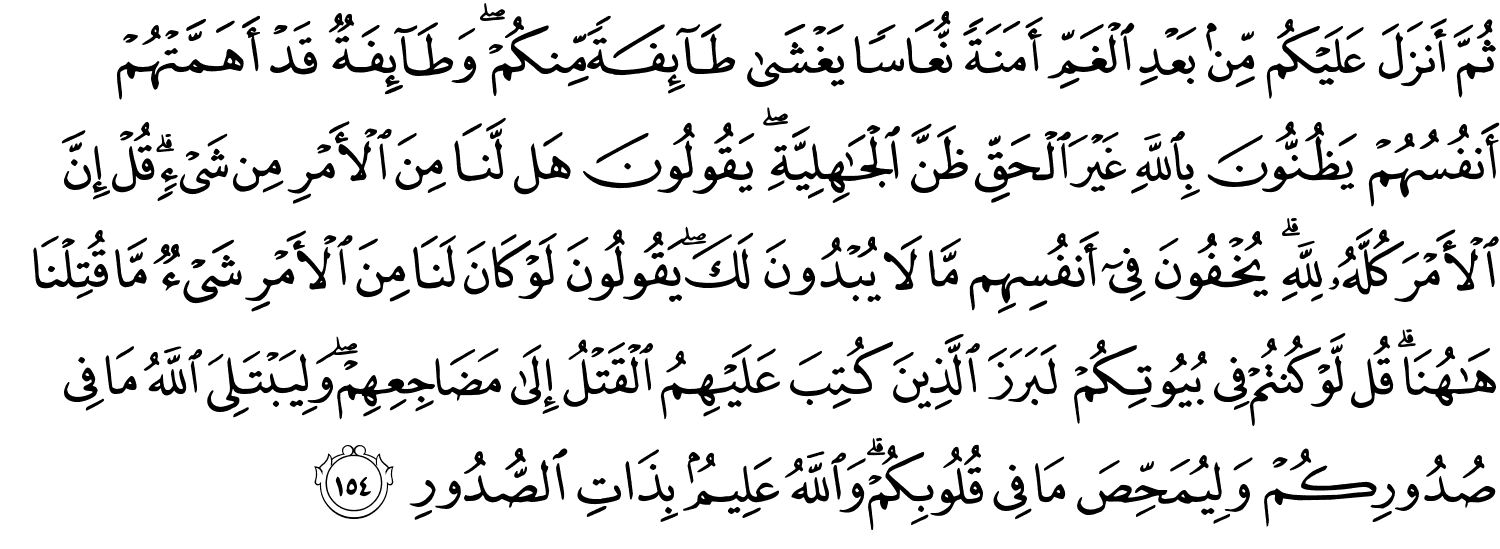 ثُمَّ أَنزَلَ عَلَيْكُم مِّنۢ بَعْدِ ٱلْغَمِّ أَمَنَةً نُّعَاسًا يَغْشَىٰ طَآئِفَةً مِّنكُمْ ۖ وَطَآئِفَةٌ قَدْ أَهَمَّتْهُمْ
أَنفُسُهُمْ يَظُنُّونَ بِٱللَّهِ غَيْرَ ٱلْحَقِّ ظَنَّ ٱلْجَـٰهِلِيَّةِ ۖ يَقُولُونَ هَل لَّنَا مِنَ ٱلْأَمْرِ مِن شَىْءٍ ۗ قُلْ إِنَّ
ٱلْأَمْرَ كُلَّهُۥ لِلَّهِ ۗ يُخْفُونَ فِىٓ أَنفُسِهِم مَّا لَا يُبْدُونَ لَكَ ۖ يَقُولُونَ لَوْ كَانَ لَنَا مِنَ ٱلْأَمْرِ شَىْءٌ مَّا قُتِلْنَا
هَـٰهُنَا ۗ قُل لَّوْ كُنتُمْ فِى بُيُوتِكُمْ لَبَرَزَ ٱلَّذِينَ كُتِبَ عَلَيْهِمُ ٱلْقَتْلُ إِلَىٰ مَضَاجِعِهِمْ ۖ وَلِيَبْتَلِىَ ٱللَّهُ مَا فِى
صُدُورِكُمْ وَلِيُمَحِّصَ مَا فِى قُلُوبِكُمْ ۗ وَٱللَّهُ عَلِيمٌۢ بِذَاتِ ٱلصُّدُورِ ١٥٤